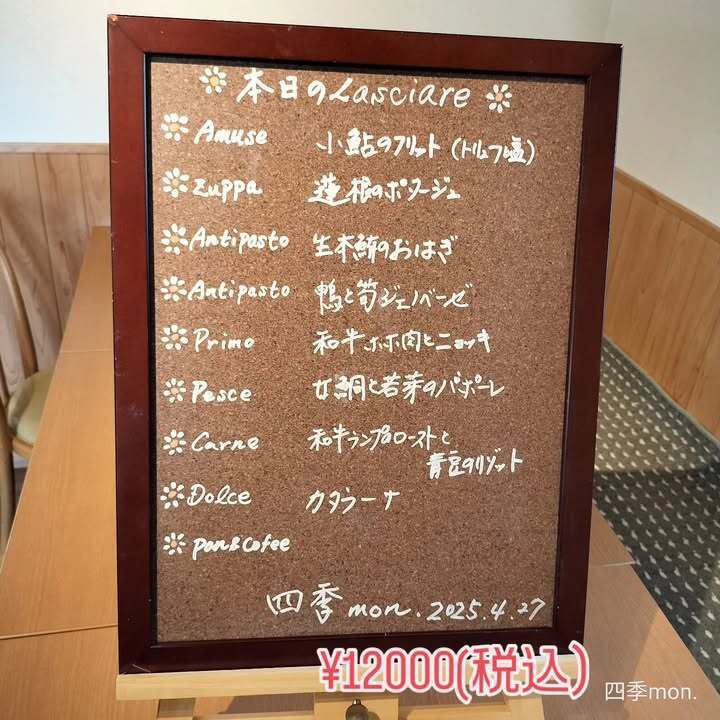 本日のLasciare
Amuse 小鮎のフリット(トリュフ塩)
Zuppa 蓮根のポタージュ
Antipasto 生本鮪のおはぎ
Antipasto 鴨と筍ジェノベーゼ
Primo 和牛ホホ肉とニョッキ
Pesce 女鯛と若芽のバポーレ
Carne 和牛ランプのローストと
青豆のリゾット
Dolce カタラーナ
pan&Cofee
四季mon.2025.4.27
¥12000(税込)
四季mon.